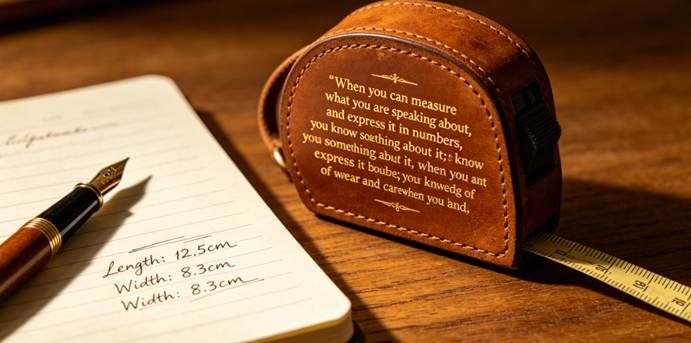 Length: 12.5cm
Width: 8.3cm
Width: 8.3cm
“When you can measure
what you are speaking about,
and express it in numbers,
you know soething about it;: know
you something abut it, when you ant
express it boube; your knwedg of
of wear and carewhen you and,